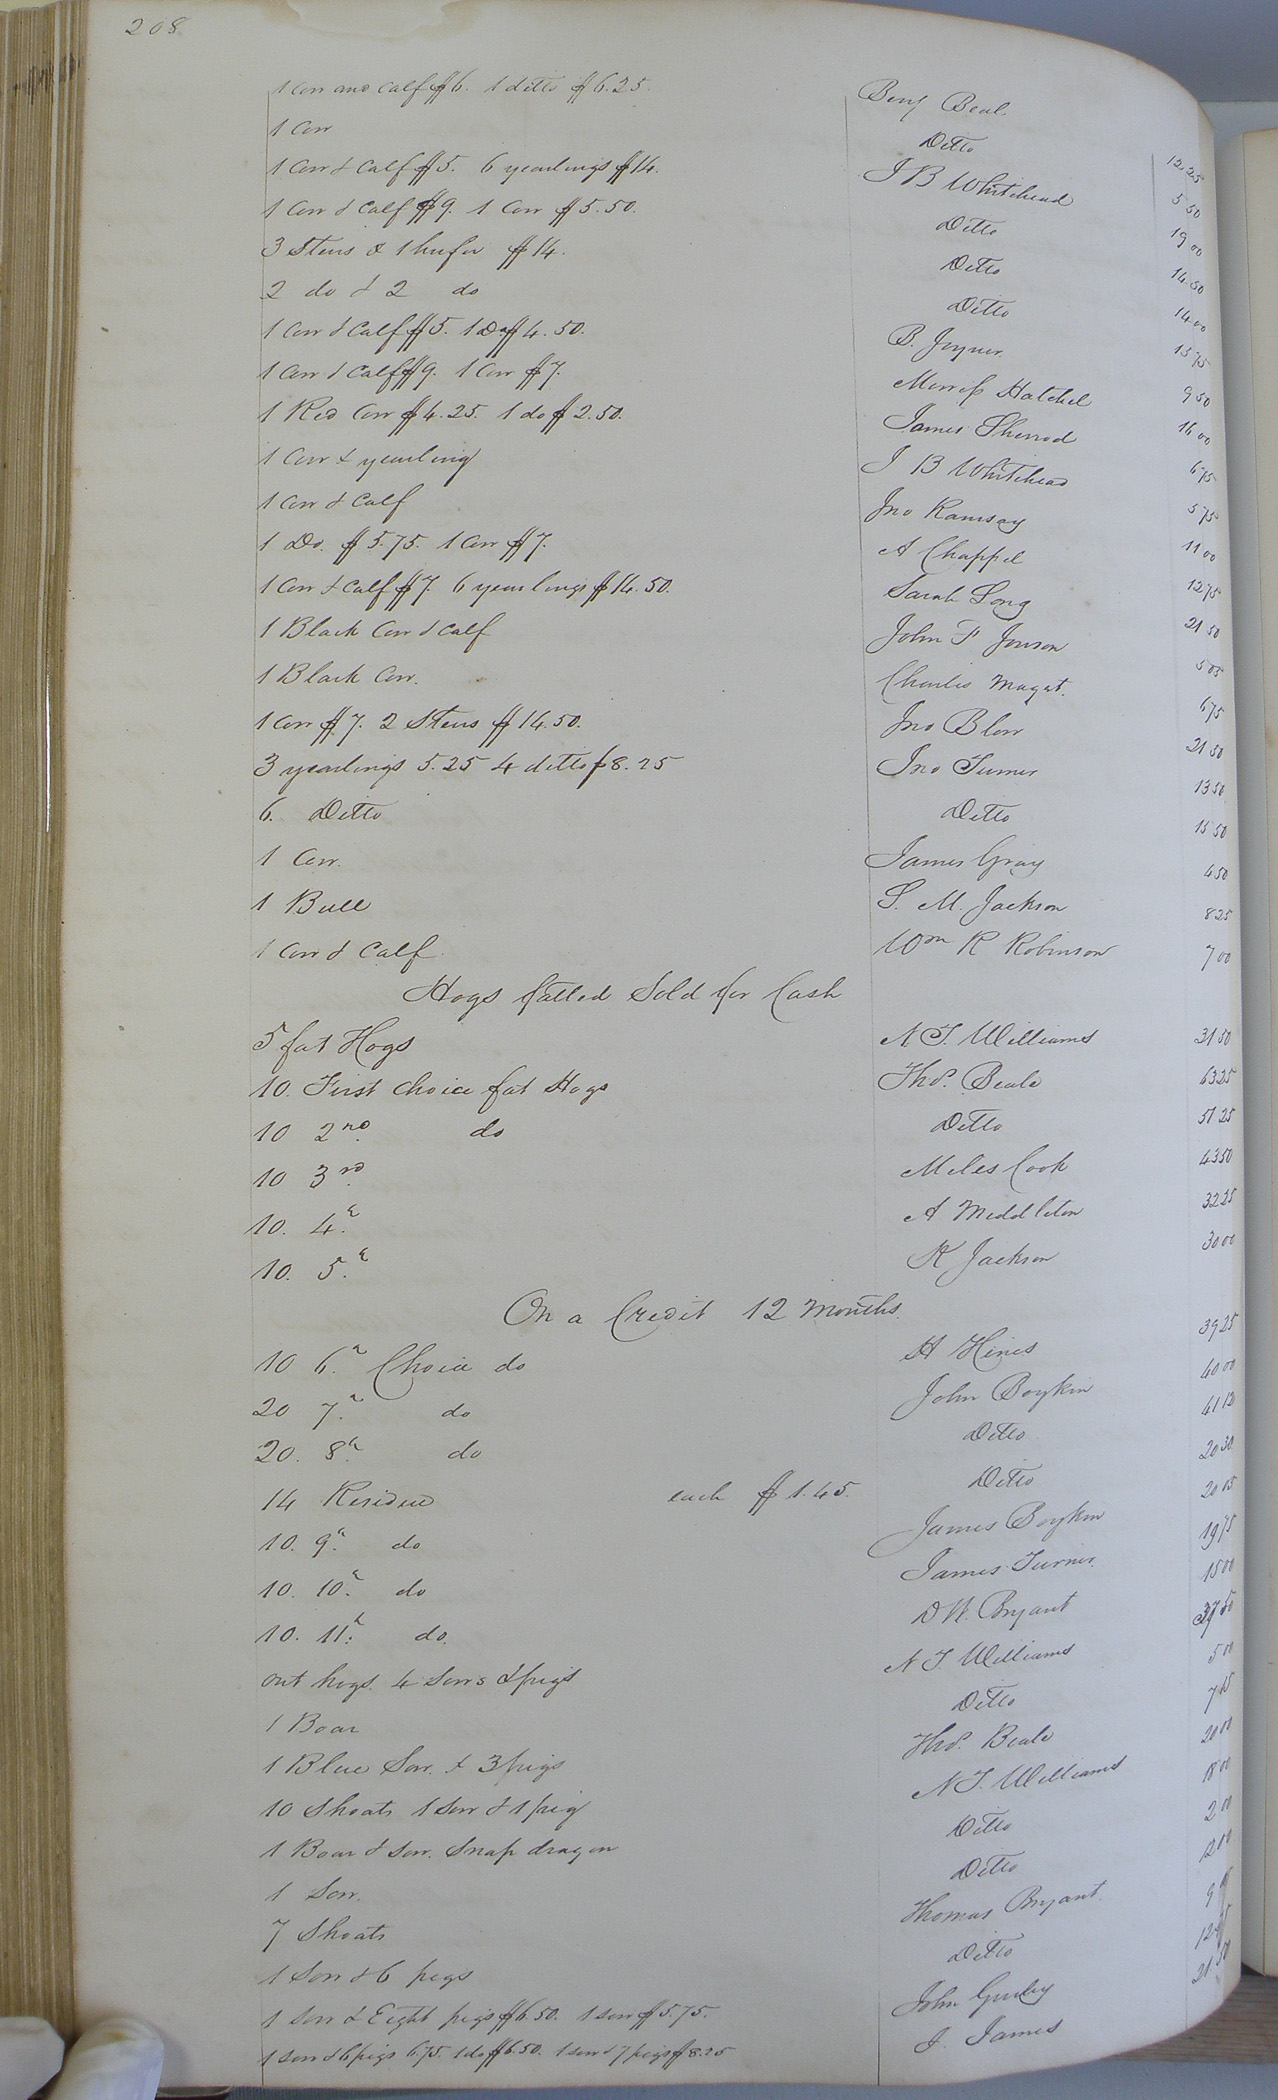 208
1 Cow and Calf $6. 1 ditto $6.25. Benj Beal. 12.25
1 Cow Ditto 5 50
1 Cow & Calf $5. 6 yearlings $14. J B Whitehead 19 00
1 Cow & Calf $9. 1 Cow $5.50. Ditto 14.50
3 Steers & 1 heifer $14. Ditto 14 00
2 do & 2 do Ditto 15 75
1 Cow & Calf $5. 1 Do $4.50. B. Joyner 9 50
1 Cow & Calf $9. 1 Cow $7. Merrit Hatchel 16 00
1 Red Cow $4.25. 1 do $2.50. James Sherrod 6 75
1 Cow & yearling J B Whitehead 5 75
1 Cow & Calf Jno Ramsay 11 00
1 Do. $5.75. 1 Cow $7. A Chappel 12 75
1 Cow & Calf $7. 6 yearlings $14.50. Sarah Long 21 50
1 Black Cow & Calf John F Jonson 5 05
1 Black Cow. Charles Maget. 6 75
1 Cow $7. 2 Steers $14.50. Jno Blow 21 50
3 yearlings 5.25 4 ditto $8.25 Jno Turner 13 50
6. Ditto Ditto 15 50
1 Cow. James Gray 4 50
1 Bull S. M. Jackson 8 25
1 Cow & Calf Wm R Robinson 7 00
Hogs fatted Sold for Cash
5 fat Hogs N T. Williams 31 50
10. First choice fat Hogs Thos. Beale 63 25
10 2nd do Ditto 51 25
10 3rd. Miles Cook 43 50
10. 4.th A Middleton 32 25
10. 5.th K Jackson 30 00
On a Credit 12 Months.
10 6.th Choice do H Hines 39 25
20 7.th do John Boykin 40 00
20. 8.th do Ditto 41 12
14 Residue each $1.45. Ditto 20 30
10. 9.th do James Boykin 20 05
10. 10.th do James Turner. 19 75
10. 11.th do. D W. Bryant 15 00
out hogs. 4 Sows & pigs N T. Williams 50
1 Boar Ditto 5 00
1 Blue Sow. & 3 pigs Thos. Beale
10 Shoats 1 Sow & 1 pig N T. Williams 20 00
1 Boar & Sow. Snap dragon Ditto 18 00
1 Sow. Ditto 2 00
7 Shoats Thomas Bryant. 12 00
1 Sow & 6 pigs Ditto 9
1 Sow & Eight pigs $6.50. 1 sow $5.75. John Gurley 12
1 Sow & 6 pigs 6.75. 1 do $6.50. 1 sow & 7 pigs $8.25 J. James 21 50